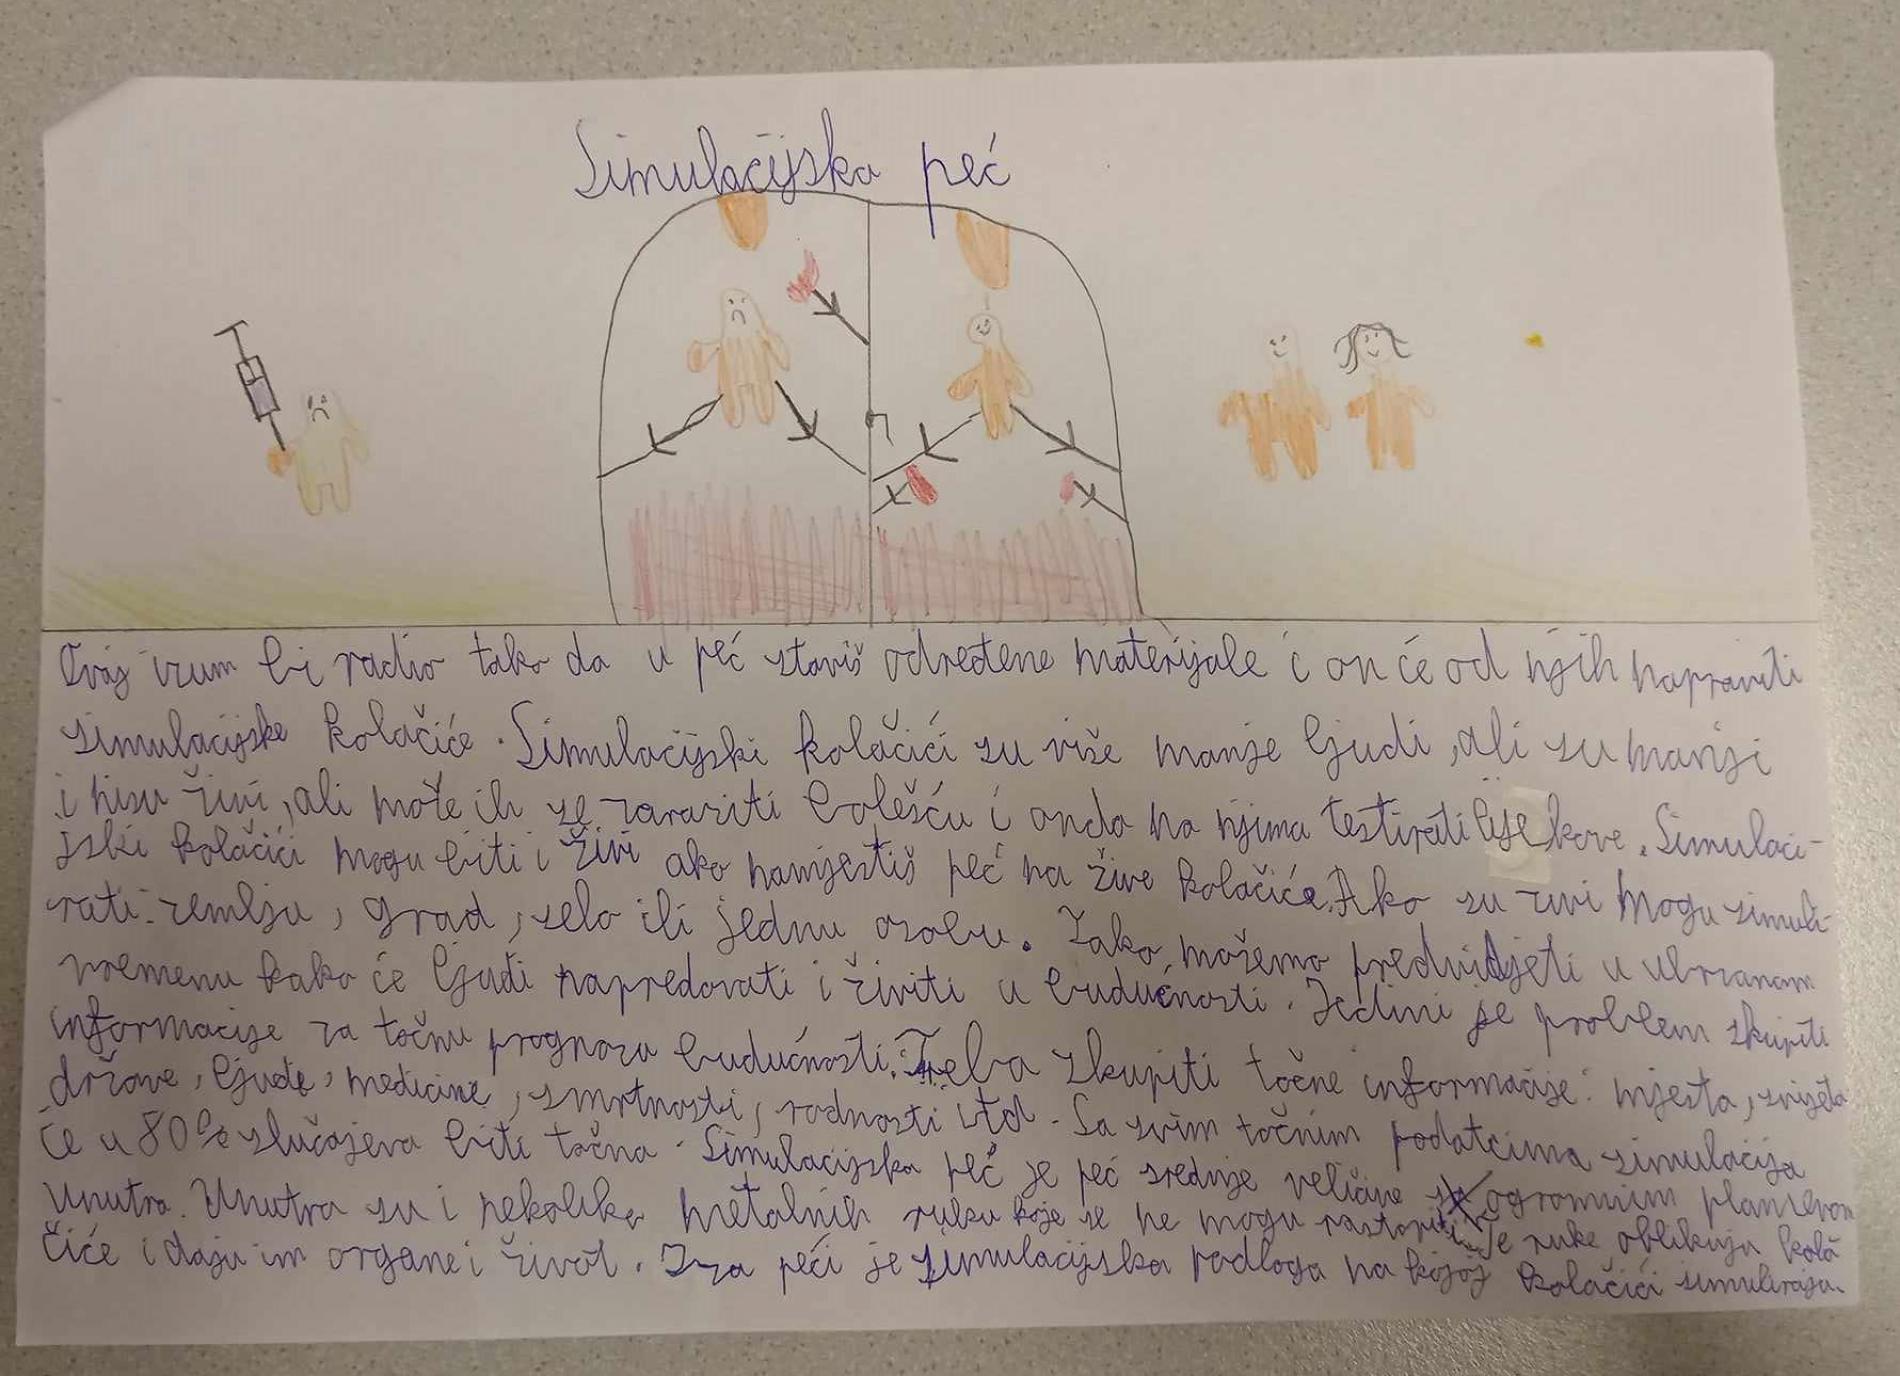 Simulacijska peć
Ovaj izum bi radio tako da u peć staviš određene materijale i on će od njih napraviti
simulacijske kolačiće. Simulacijski kolačići su više manje ljudi, ali su manji
i nisu živi, ali može ih se zaraziti bolešću i onda na njima testirati lijekove. Simulaci-
jski kolačići mogu biti i živi ako namjestiš peć na žive kolačiće. Ako su zivi mogu simuli-
rati: zemlju, grad, selo ili jednu osobu. Tako možemo predvidjeti u ubrzanom
vremenu kako će ljudi napredovati i živiti u budućnosti. Jedini je problem skupiti
informacije za točnu prognozu budućnosti. Treba skupiti točne informacije: mjesta, svijeta
države, ljude, medicine, smrtnosti, rodnosti itd. Sa svim točnim podatcima simulacija
će u 80% slučajeva biti točna. Simulacijska peć je peć srednje veličine ogromnim plamenom
unutra. Unutra su i nekoliko metalnih ruku koje se ne mogu rastopiti. Te ruke oblikuju kola
čiće i daju im organe i život. Iza peći je simulacijska podloga na kojoj kolačići simuliraju.